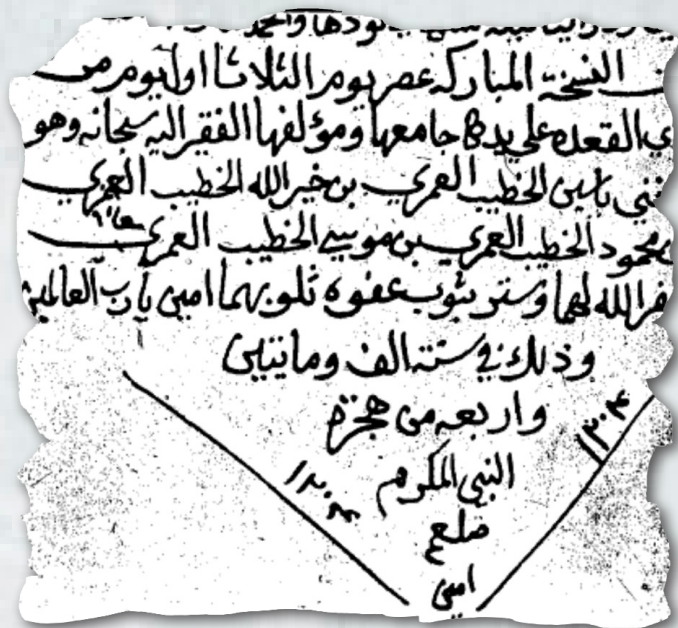 النسخة المباركه عصر يوم الثلاثا اول يوم من
ذي القعده على يد جامعها ومؤلفها الفقير اليه سبحانه وهو
ياسين الخطيب العمري بن خير الله الخطيب العمري
محمود الخطيب العمري بن موسى الخطيب العمري
الله لهما وستر بثوب عفوه امين يا رب العالمين
وذلك في سنة الف ومايتين
واربعه من هجرة
١٢٠٤
النبي المكرم
١٢٠٤
صلعم
امين